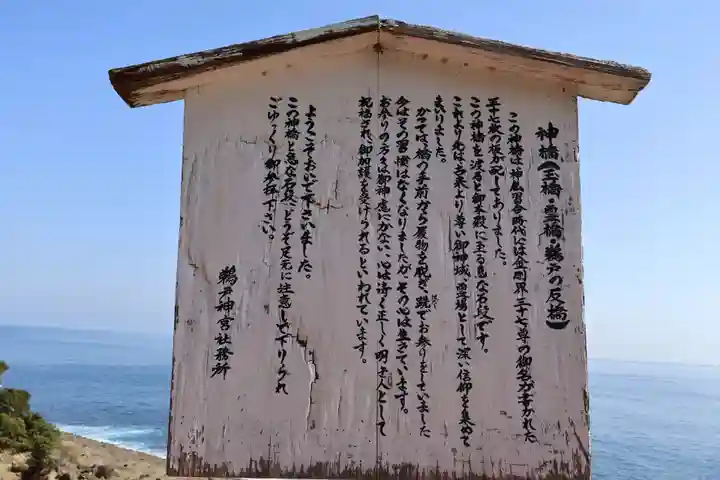 神橋(玉橋・霊橋・鵜戸の反橋)
この神橋は神仏習合時代には金剛界三十七尊の御名が書かれた
三十七枚の板が配してありました。
この神橋を渡ると御本殿に至る急な石段です。
これより先は古来より尊い御神域、霊場として深い信仰を集めて
まいりました。
かつては、橋の手前から履物を脱ぎ、跣でお参りをしていました
今はその習慣はなくなりましたが、その心は生きています。
お参りの方々は御神慮にかない、心は清く正しく明るい人として
祝福され、御加護を受けられるといわれています。
ようこそおいで下さいました。
この神橋と急な石段、どうぞ足元に注意して下りられ
ごゆっくり御参拝下さい。
鵜戸神宮社務所